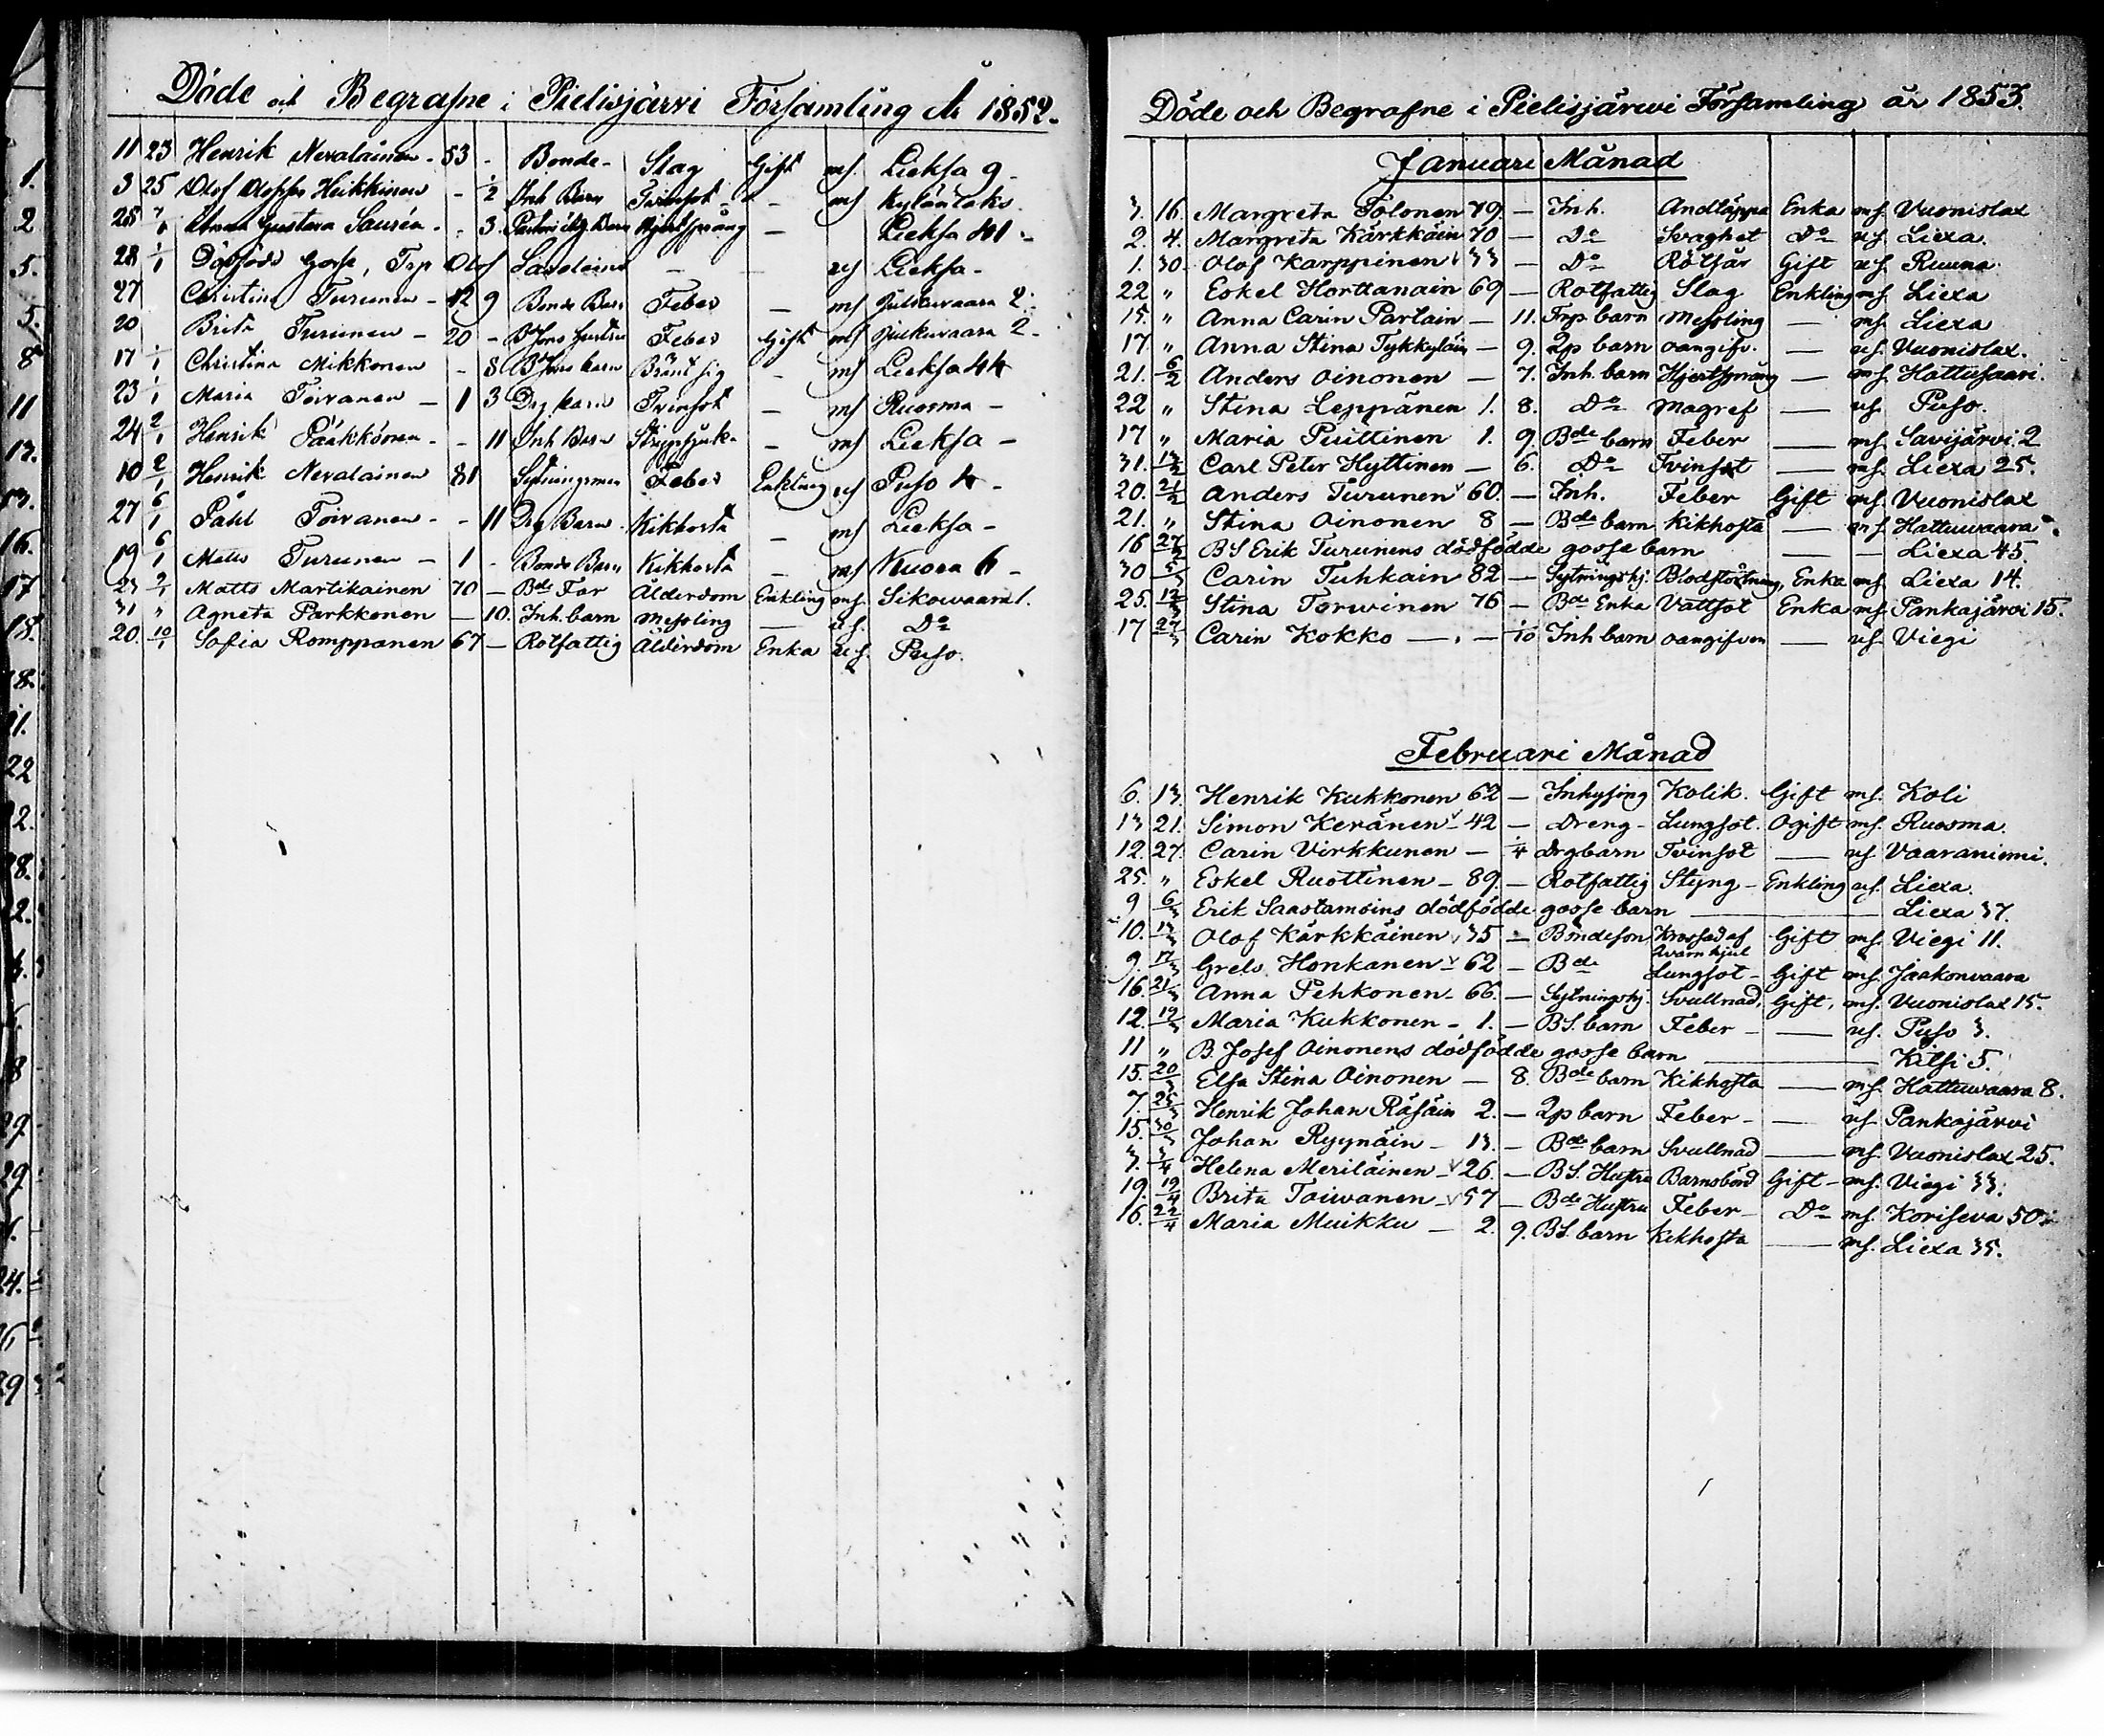 Döde och Begrafne i Pielisjärvi Församling År 1852.
11 23 Henrik Nevalainen - 53 - Bonde - Slag Gift mf. Lieksa 9 -
3 25 Olof Heikkinen - 1/2 Inh Barn Tvinsot - - mf Kyläntaks.
25 Anna Gustava Saurén - - 3. Barn Hjertsprång - Lieksa 41 -
28 1/1 Dödföde Gosse, Trp Olof - - uf Lieksa -
27 Christina Turunen - 12 9 Bonde Barn Feber - mf Julkuvaara 2.
20 Brita Turunen - 20 - Hustru Feber Gift mf Julkuvaara 2 -
17 1/1 Christina Mikkonen - 8 barn Bränt sig - mf Lieksa 44
23 1/1 Maria Toivanen - 1 3 Drg barn Tvinsot - mf Ruosma -
24 2/1 Henrik Pääkkönen - - 11 Inh Barn - mf Lieksa -
10 2/1 Henrik Nevalainen 81 Sytningsman Feber Enkling uf Puso 4 -
27 6/1 Påhl Toivanen - - 11 Drg Barn Kikhosta - mf Lieksa -
19 6/1 Matts Turunen - 1 - Bonde Barn Kikhosta - mf Nuora 6 -
23 2/1 Matts Martikainen 70 - Bde Far Ålderdom Enkling mf. Sikowaara 1.
31 " Agneta Parkkonen - 10. Inh. barn Messling - uf. Do
20. 10/1 Sofia Romppanen 67 - Rotfattig Ålderdom Enka uf. Puso.
Döde och Begrafne i Pielisjärwi Församling år 1853.
Januari Månad
3. 16. Margreta Tolonen 79. - Inh. Andtäppa Enka mf. Vuonislax
2. 4. Margreta Kärkkäin 70 - Do Svaghet Do uf. Liexa.
1. 30 Olof Karppinen 33 - Do Rötfär Gift uf. Ruuna
22 " Eskel Horttanain 69 - Rotfattig Slag Enkling mf. Liexa
15. " Anna Carin Partain - 11. Trp barn Messling - mf. Liexa
17. " Anna Stina Tykkyläin - 9. 2p barn oangifv. - uf. Vuonislax.
21. 6/2 Anders Oinonen - 7. Inh. barn Hjertsprång - mf. Hattusaari.
22 " Stina Leppänen 1. 8. Do Magref - uf. Puso.
17 " Maria Puittinen 1. 9. Bde barn Feber - mf. Savijärvi 2
31. 13/2 Carl Peter Hyttinen - 6. Do Tvinsot - mf. Liexa 25.
20. 21/2 Anders Turunen 60. - Inh. Feber Gift mf. Vuonislax
21. " Stina Oinonen 8 - Bde barn Kikhosta - mf. Hattuwaara
16 27/2 BS Erik Turunens dödfödde gosse barn - - Liexa 45.
30 5/3 Carin Tuhkain 82 - Sytningshj. Blodstörtning Enka mf. Liexa 14.
25. 12/3 Stina Torwinen 76 - Bde Enka Vattsot Enka mf. Pankajärvi 15.
17 27/3 Carin Kokko - . - 1/10 Inh barn oangifven - uf. Viegi
Februari Månad
6. 13. Henrik Kukkonen 62 - Inhysing Kolik. Gift mf. Koli
13 21. Simon Keränen - 42 - Dreng - Lungsot. Ogift mf. Ruosma.
12. 27. Carin Virkkunen - 1/4 Drgbarn Tvinsot - uf. Vaaraniemi.
25. " Eskel Ruottinen - 89. - Rotfattig Styng - Enkling uf. Liexa.
9 6/3 Erik Saastamoins dödfödde gosse barn - Liexa 37.
10. 13/3 Olof Kärkkäinen 35 - Bondeson Krossad af qvarnhjul Gift mf. Viegi 11.
9. 17/3 Grels Honkanen - 62 - Bde Lungsot - Gift mf. Jaakonvaara
16. 21/3 Anna Pehkonen - 66. - Sytningshj. Svullnad. Gift, mf. Vuonislax 15.
12. 19/3 Maria Kukkonen - 1. - BS. barn Feber - - uf. Puso 3.
11 " B. Josef Oinonens dödfödde gosse barn - Kitsi 5.
15. 20/3 Elsa Stina Oinonen - 8. Bde barn Kikhosta - mf. Hattuwaara 8.
7. 25/3 Henrik Johan Räsäin 2. - 2p barn Feber - - uf. Pankajärvi
15. 30/3 Johan Ryynäin - 13. - Bde barn Svullnad - mf. Vuonislax 25.
3. 3/4 Helena Meriläinen - 26. - BS. Hustru Barnsbörd Gift - mf. Viegi 33.
19. 19/4 Brita Toiwanen - 57 - Bde Hustru Feber - Do mf. Koriseva 50.
16. 22/4 Maria Muikku - 2. 9. BS. barn Kikhosta - mf. Liexa 35.